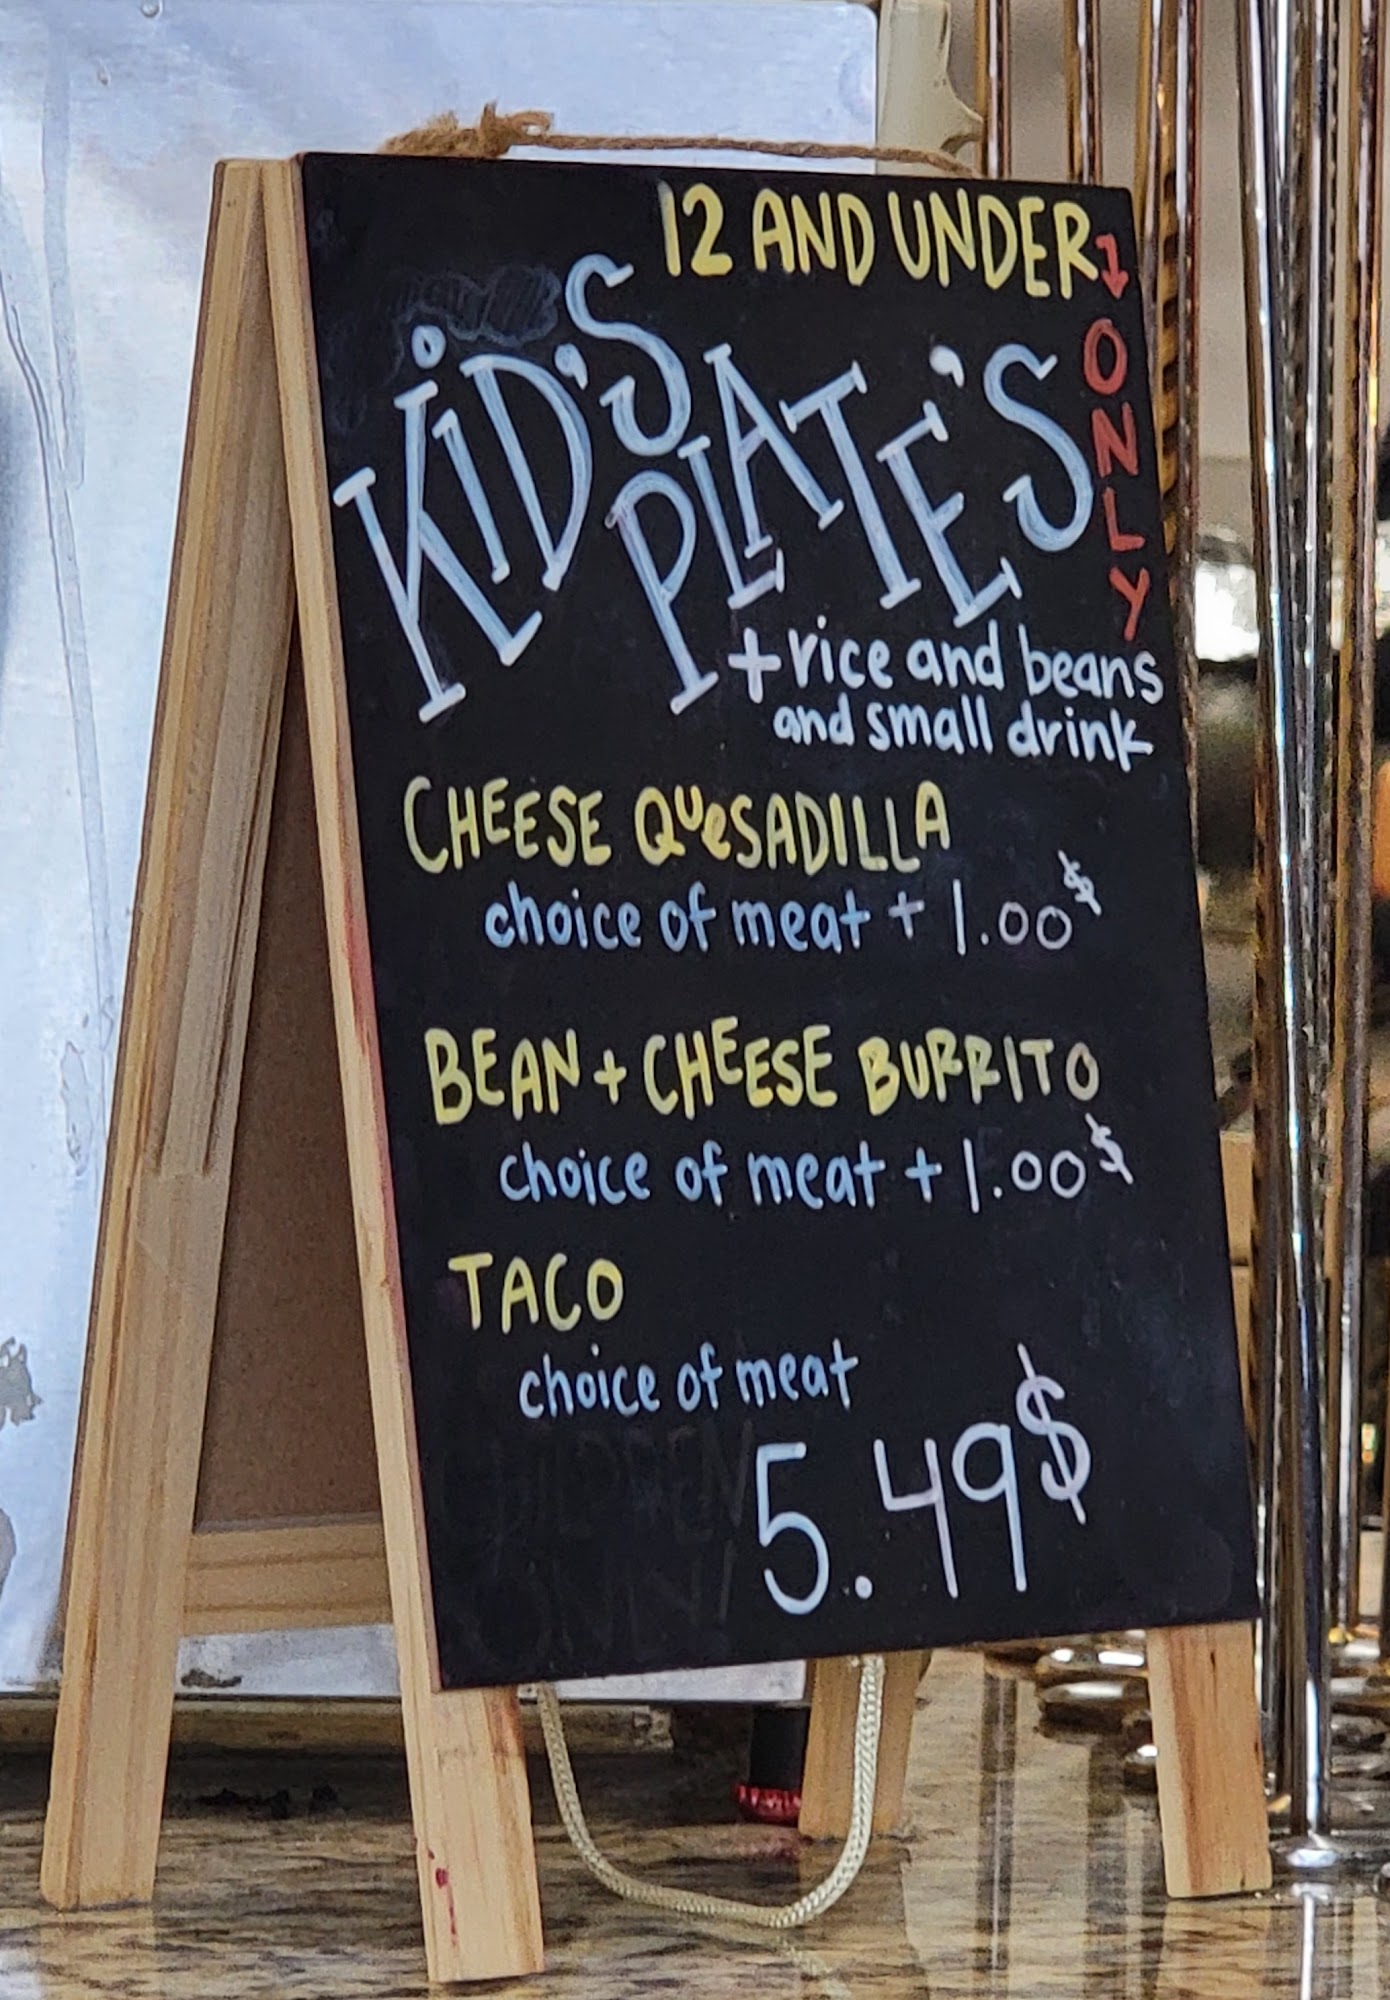 12 AND UNDER
ONLY
KiD'S PLATE'S
+ rice and beans
and small drink
CHEESE QUeSADILLA
choice of meat + 1.00$
BEAN + CHEESE BURRITO
choice of meat + 1.00$
TACO
choice of meat
5.49$
CHILDREN
ONLY